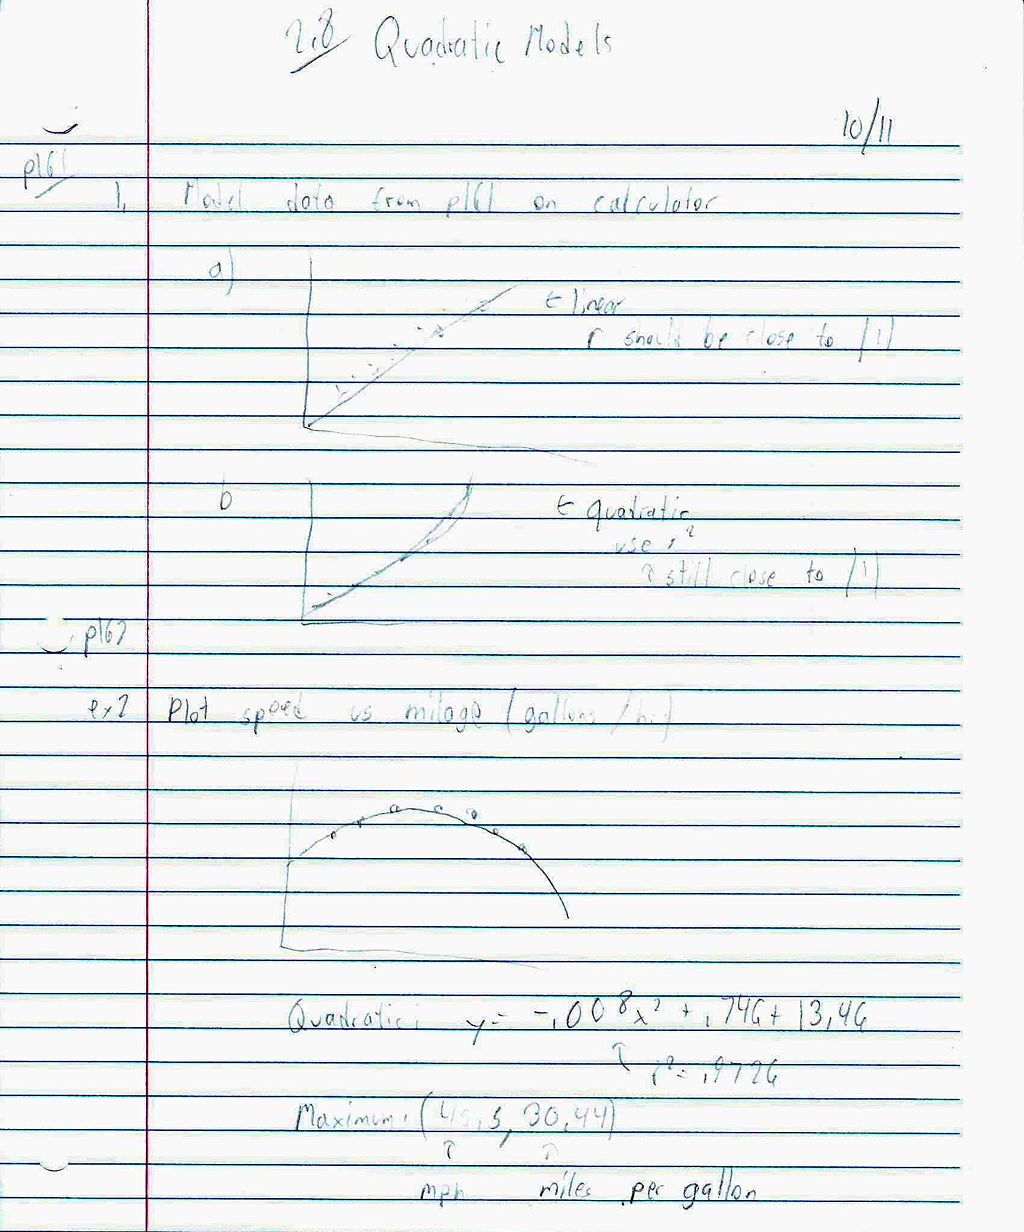 2.8 Quadratic Models
10/11
p161
1. Model data from p161 on calculator
a)
← linear
r should be close to |1|
b
← quadratic
use r²
↑ still close to |1|
p162
ex2 Plot speed vs milage (gallons/hr)
Quadratic: y = -.008x² + .746+ 13.46
↑ r² = .9726
Maximum: (45.5, 30.44)
↑ ↑
mph miles per gallon